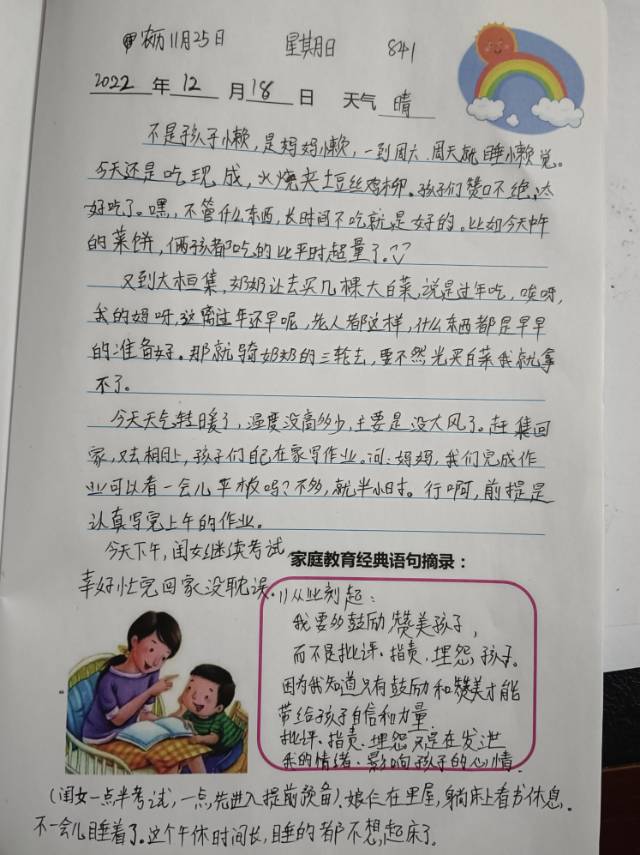 农历11月25日 星期日 841
2022年12月18日 天气 晴
不是孩子懒,是妈妈懒,一到周六、周天就睡懒觉。
今天还是吃现成,火烧夹土豆丝鸡柳。孩子们赞口不绝,太
好吃了。嘿,不管什么东西,长时间不吃就是好的。比如今天中午
的菜饼,俩孩都吃的比平时超量了。
又到大桓集,奶奶让去买几棵大白菜,说是过年吃,唉呀,
我的妈呀,这离过年还早呢,老人都这样,什么东西都是早早
的准备好。那就骑奶奶的三轮去,要不然光买白菜我就拿
不了。
今天天气转暖了,温度没高多少,主要是没大风了。赶集回
家,又去相上,孩子们自己在家写作业。问:妈妈,我们完成作
业可以看一会儿平板吗?不多,就半小时。行啊,前提是
认真写完上午的作业。
今天下午,闺女继续考试,
幸好忙完回家没耽误。
家庭教育经典语句摘录:
1)从此刻起:
我要多鼓励赞美孩子,
而不是批评、指责、埋怨孩子。
因为我知道只有鼓励和赞美才能
带给孩子自信和力量.
批评、指责、埋怨只是在发泄
我的情绪、影响孩子的心情.
(闺女一点半考试,一点先进入提前预备).娘仨在里屋,躺床上看书休息.
不一会儿睡着了.这个午休时间长,睡的都不想起床了.